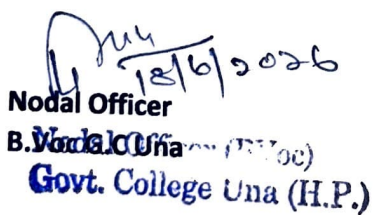 18/6/2026
Nodal Officer
B.Voc G.C Una
Nodal Officer (B.Voc)
Govt. College Una (H.P.)